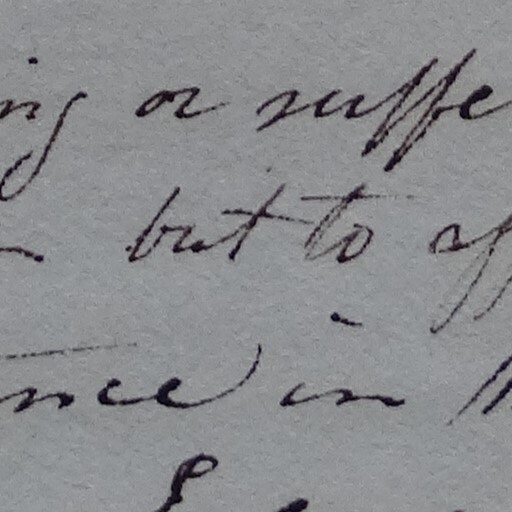 ing or suffe
but to aff
ance in